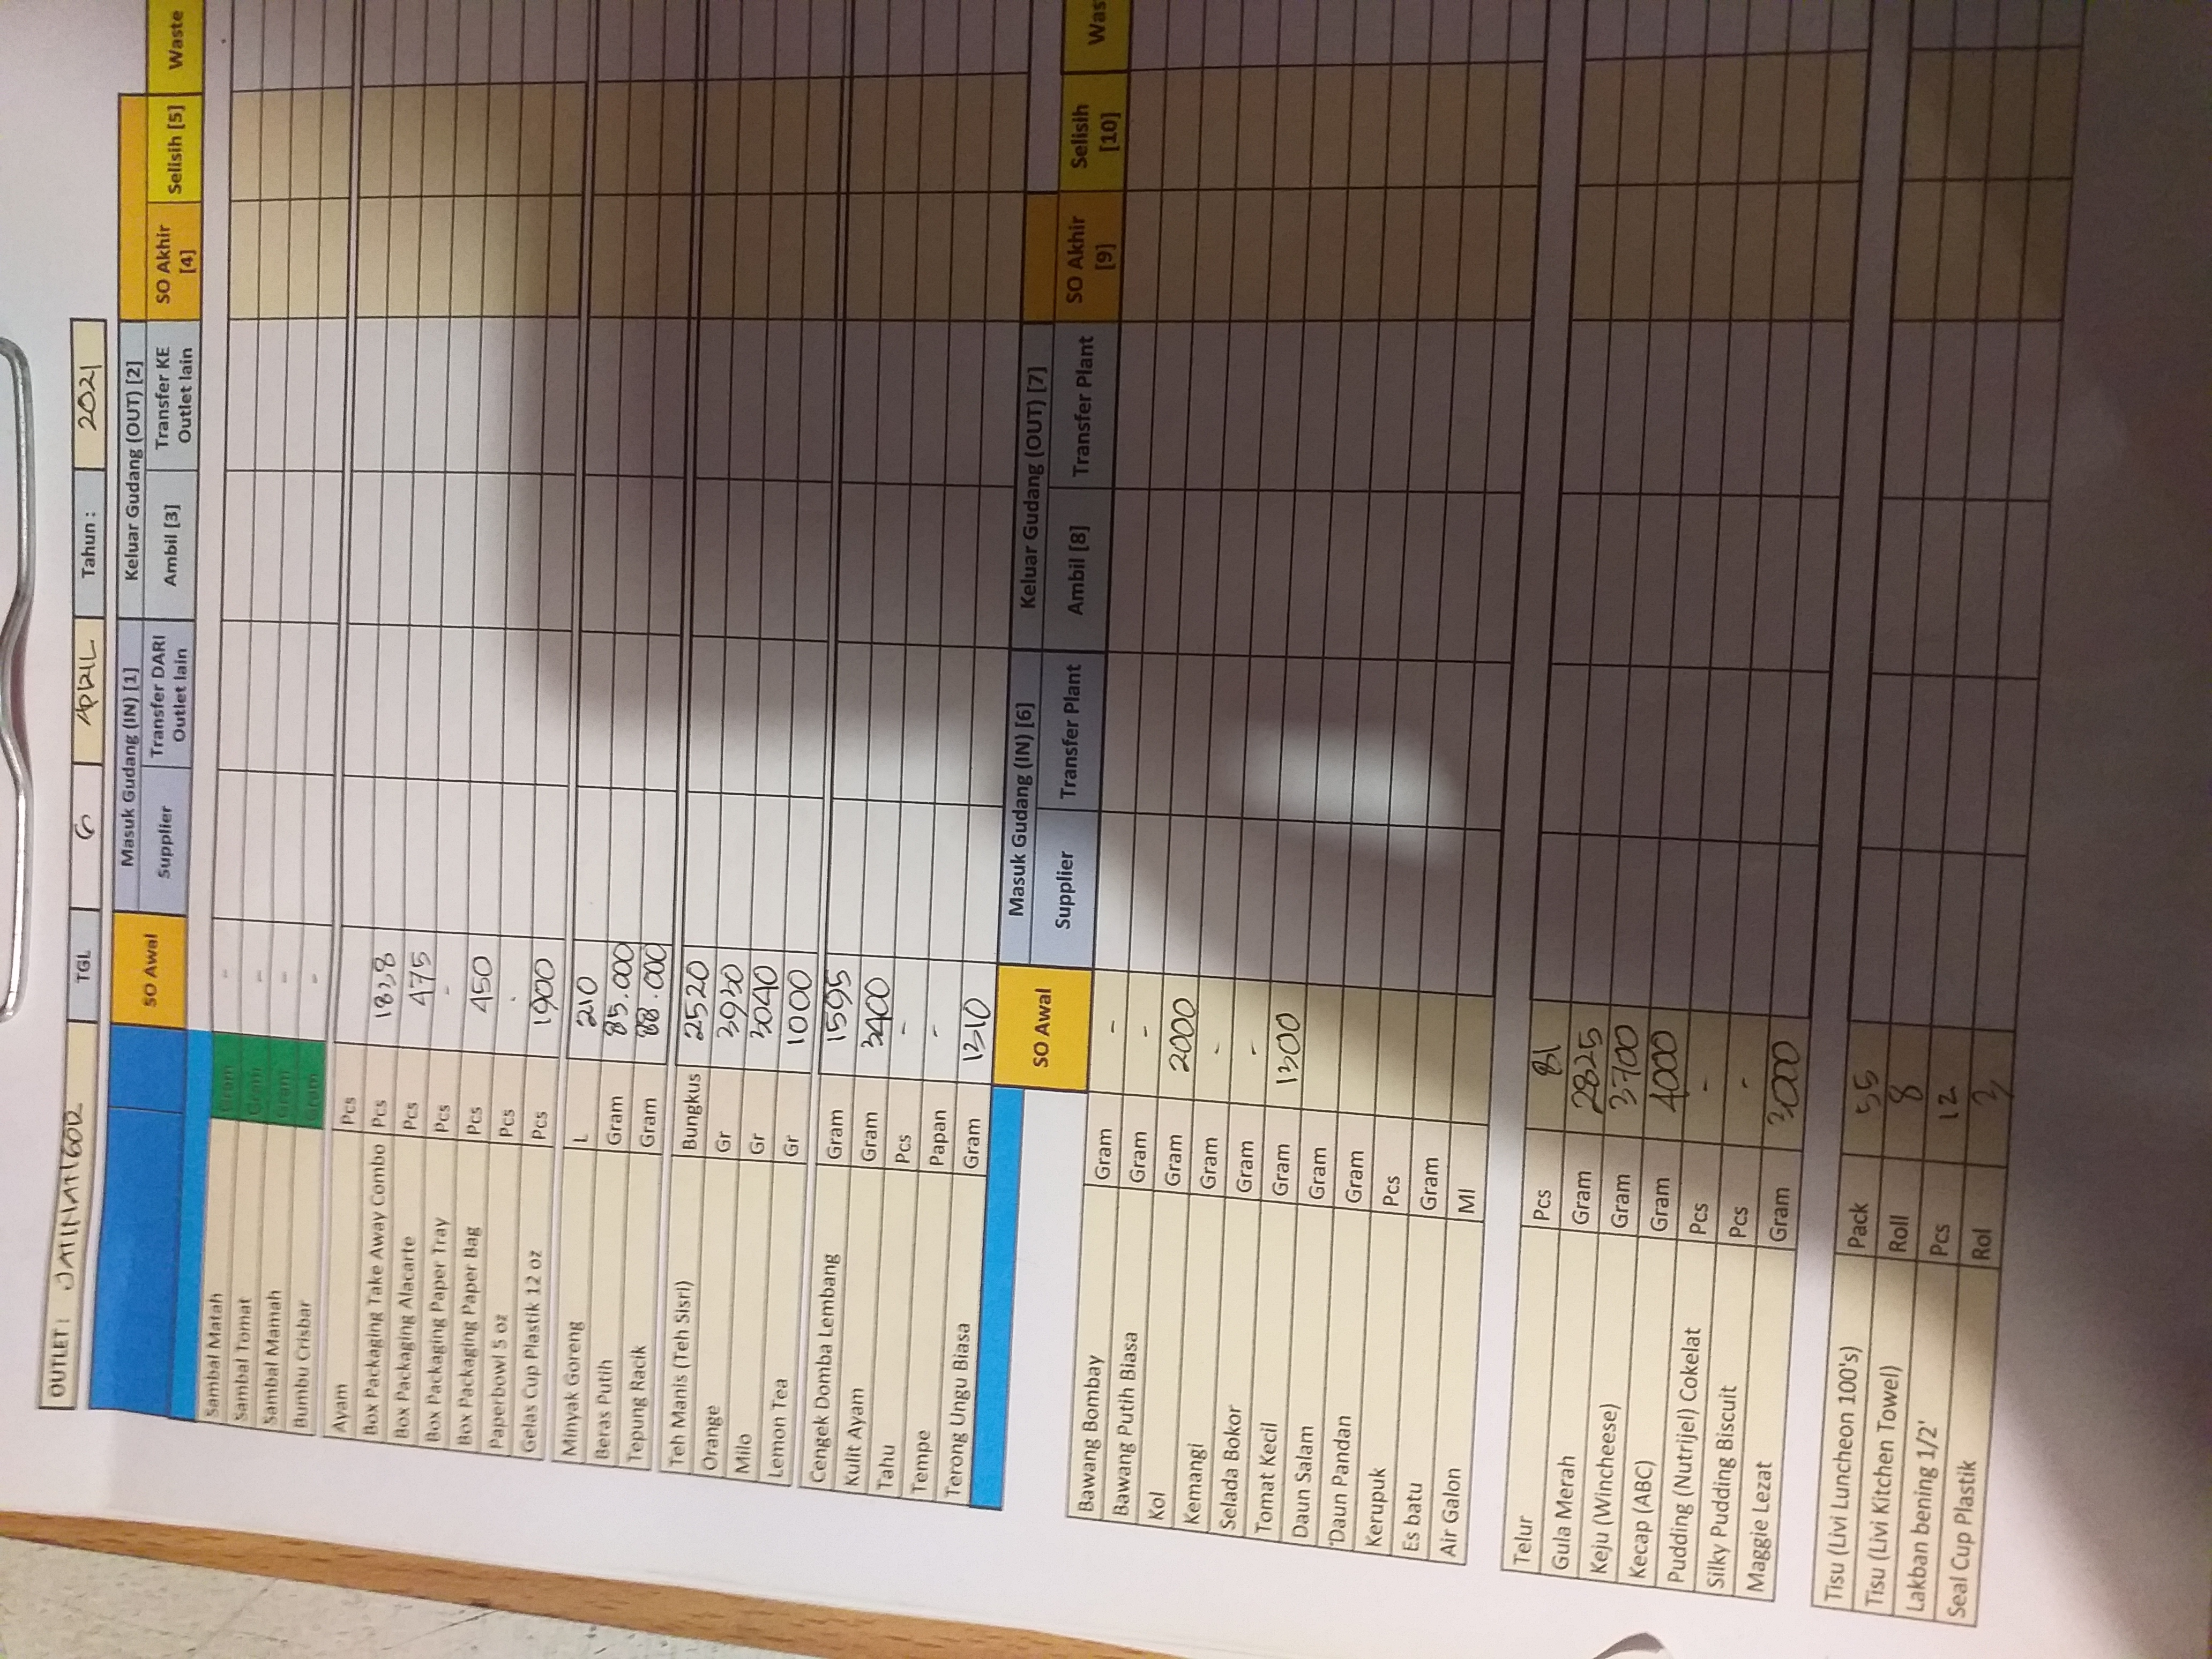 OUTLET : JATINANGOR TGL 6 APRIL Tahun : 2021
SO Awal Masuk Gudang (IN) [1] Keluar Gudang (OUT) [2] SO Akhir [4] Selisih [5] Waste
Supplier Transfer DARI Outlet lain Ambil [3] Transfer KE Outlet lain
Sambal Matah Gram -
Sambal Tomat Gram -
Sambal Mamah Gram -
Bumbu Crisbar Gram -
Ayam Pcs
Box Packaging Take Away Combo Pcs 1838
Box Packaging Alacarte Pcs 475
Box Packaging Paper Tray Pcs -
Box Packaging Paper Bag Pcs 450
Paperbowl 5 oz Pcs -
Gelas Cup Plastik 12 oz Pcs 1900
Minyak Goreng L 210
Beras Putih Gram 85.000
Tepung Racik Gram 88.000
Teh Manis (Teh Sisri) Bungkus 2520
Orange Gr 3930
Milo Gr 3040
Lemon Tea Gr 1000
Cengek Domba Lembang Gram 1595
Kulit Ayam Gram 3400
Tahu Pcs -
Tempe Papan -
Terong Ungu Biasa Gram 1310
SO Awal Masuk Gudang (IN) [6] Keluar Gudang (OUT) [7] SO Akhir [9] Selisih [10] Was
Supplier Transfer Plant Ambil [8] Transfer Plant
Bawang Bombay Gram -
Bawang Putih Biasa Gram -
Kol Gram 2000
Kemangi Gram -
Selada Bokor Gram -
Tomat Kecil Gram 1300
Daun Salam Gram
Daun Pandan Gram
Kerupuk Pcs
Es batu Gram
Air Galon Ml
Telur Pcs 81
Gula Merah Gram 2825
Keju (Wincheese) Gram 3700
Kecap (ABC) Gram 4000
Pudding (Nutrijel) Cokelat Pcs -
Silky Pudding Biscuit Pcs -
Maggie Lezat Gram 3000
Tisu (Livi Luncheon 100's) Pack 55
Tisu (Livi Kitchen Towel) Roll 8
Lakban bening 1/2' Pcs 12
Seal Cup Plastik Rol 3